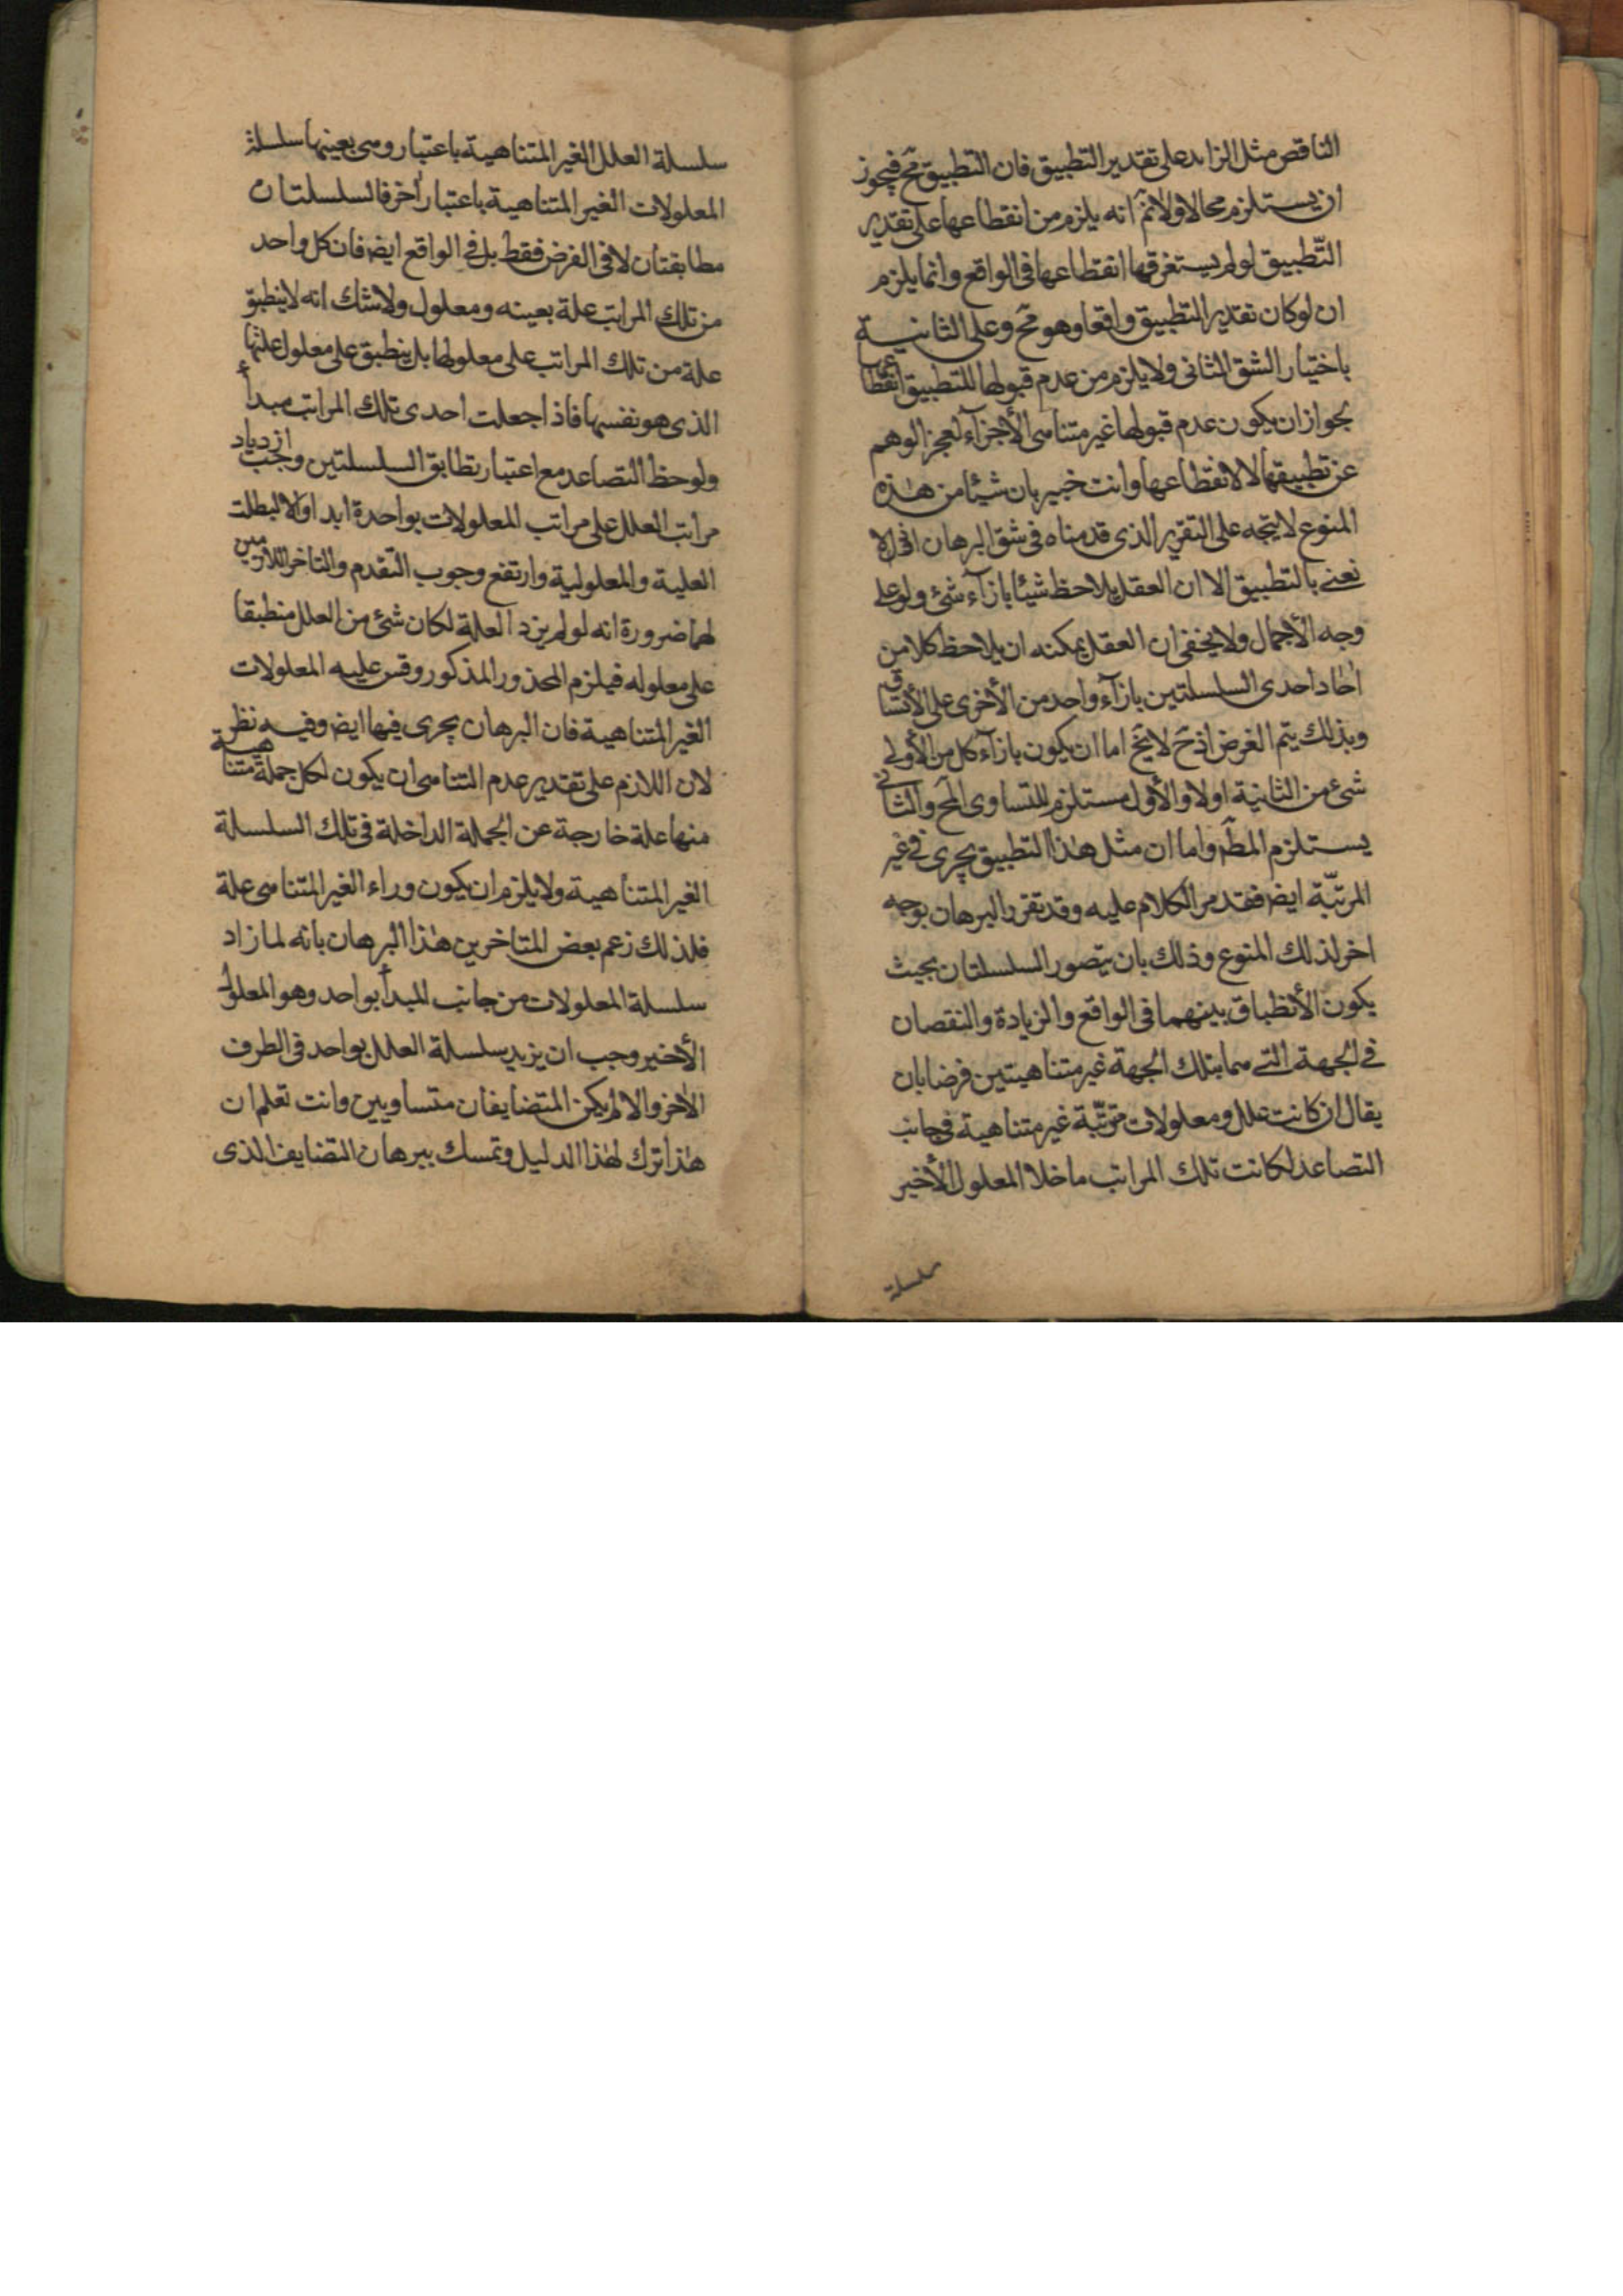 الناقص مثل الزايد على تقدير التطبيق فان التطبيق مح فيجوز
ان يستلزم محالا ولا نم انه يلزم من انقطاعها على تقدير
التّطبيق لو لم يستغرقها انقطاعها فى الواقع وانما يلزم
ان لو كان تقدير التطبيق واقعا وهو مح وعلى الثانية
باختيار الشق الثانى ولا يلزم من عدم قبولها للتطبيق انقطاعها
بجواز ان يكون عدم قبولها غير متناهى الأجزآء لعجز الوهم
عن تطبيقها لا لانقطاعها وانت خبير بان شيئا من هذه
المنوع لا يتجه على التقرير الذى قدمناه فى شق البرهان اذ لا
نعنى بالتطبيق الا ان العقل يلاحظ شيئا بازآء شئ ولو على
وجه الأجمال ولا يخفى ان العقل يمكنه ان يلاحظ كلا من
اٰحاد احدى السلسلتين بازآء واحد من الأخرى على الأتساق
وبذلك يتم الغرض اذ ح لا يخ اما ان يكون بازآء كل من الأولى
شئ من الثانية اولا والأول مستلزم للتساوى المح والثانى
يستلزم المط واما ان مثل هٰذا التطبيق يجرى فى غير
المرتبّة ايضا فقد مر الكلام عليه وقد تقرر البرهان بوجه
اخر لذلك المنوع وذلك بان يتصور السلسلتان بحيث
يكون الأنطباق بينهما فى الواقع والزيادة والنقصان
فى الجهة التى هما بتلك الجهة غير متناهيتين فرضا بان
يقال ان كانت علل ومعلولات مترتبّة غير متناهية فى جانب
التصاعد لكانت تلك المراتب ما خلا المعلول الأخير
سلسلة
سلسلة العلل الغير المتناهية باعتبار وهى بعينها سلسلة
المعلولات الغير المتناهية باعتبار أخر فالسلسلتان
مطابقتان لا فى الفرض فقط بل فى الواقع ايضا فان كل واحد
من تلك المراتب علة بعينه ومعلول ولا شك انه لا ينطبق
علة من تلك المراتب على معلولها بل ينطبق على معلول علتها
الذى هو نفسها فاذا جعلت احدى تلك المراتب مبدأ
ولوحظ التصاعد مع اعتبار تطابق السلسلتين وجب ازدياد
مراتب العلل على مراتب المعلولات بواحدة ابدا والا لبطلت
العلية والمعلولية وارتفع وجوب التقدم والتاخر اللازمين
لهما ضرورة انه لو لم يزد العلة لكان شئ من العلل منطبقا
على معلوله فيلزم المحذور المذكور وقس عليه المعلولات
الغير المتناهية فان البرهان يجرى فيها ايضا وفيه نظر
لان اللازم على تقدير عدم التناهى ان يكون لكل جملة متناهية
منها علة خارجة عن الجملة الداخلة فى تلك السلسلة
الغير المتناهية ولا يلزم ان يكون وراء الغير المتناهى علة
فلذلك زعم بعض المتاخرين هٰذا البرهان بانه لما زاد
سلسلة المعلولات من جانب المبدأ بواحد وهو المعلول
الأخير وجب ان يزيد سلسلة العلل بواحد فى الطرف
الاٰخر والا لم يكن المتضايفان متساويين وانت تعلم ان
هٰذا ترك لهٰذا الدليل وتمسك ببرهان التضايف الذى